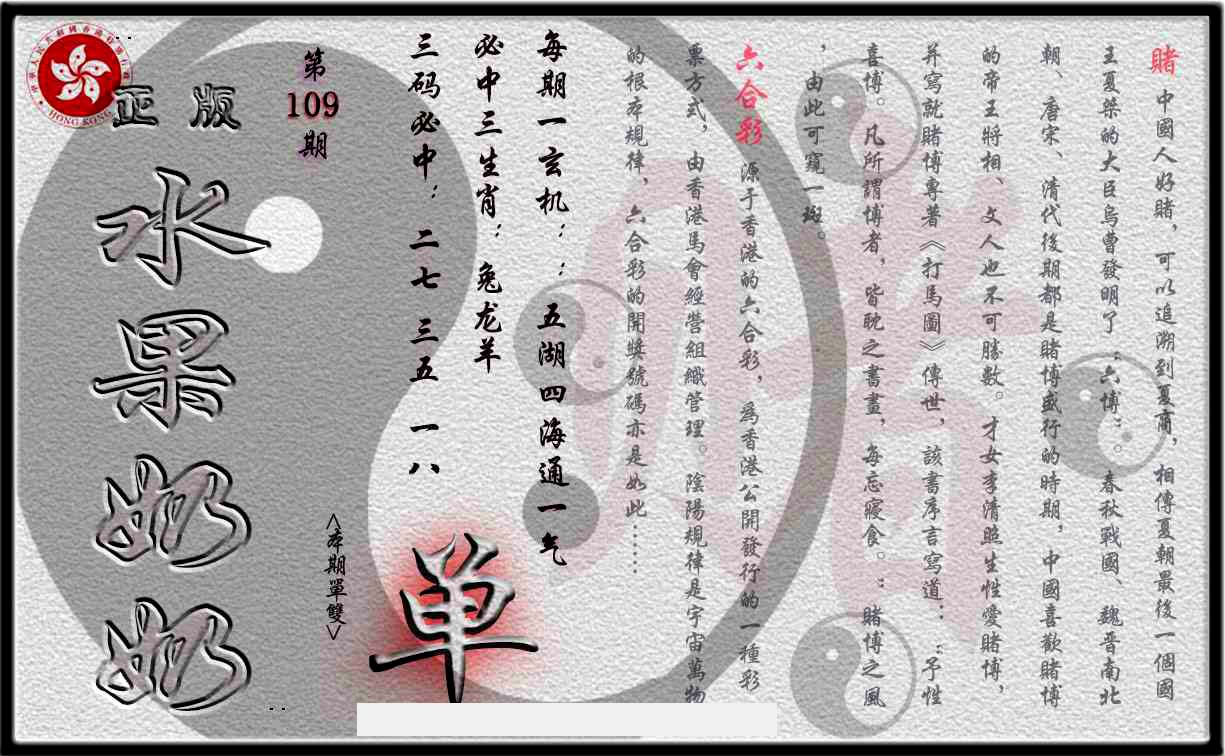 賭 中國人好賭，可以追溯到夏商，相傳夏朝最後一個國
王夏桀的大臣烏曹發明了“六博”。春秋戰國、魏晋南北
朝、唐宋、清代後期都是賭博盛行的時期，中國喜歡賭博
的帝王將相、文人也不可勝數。才女李清照生性愛賭博，
并寫就賭博專著《打馬圖》傳世，該書序言寫道：“予性
喜博。凡所謂博者，皆耽之晝晝，每忘寢食。”賭博之風
，由此可窺一斑。
六合彩 源于香港的六合彩，爲香港公開發行的一種彩
票方式，由香港馬會經營組織管理。陰陽規律是宇宙萬物
的根本規律，六合彩的開獎號碼亦是如此……
每期一玄机：：五湖四海通一气
必中三生肖：兔龙羊
三码必中：二七 三五 一八
单
<本期單雙>
第
109
期
正版
水果奶奶
HONG KONG